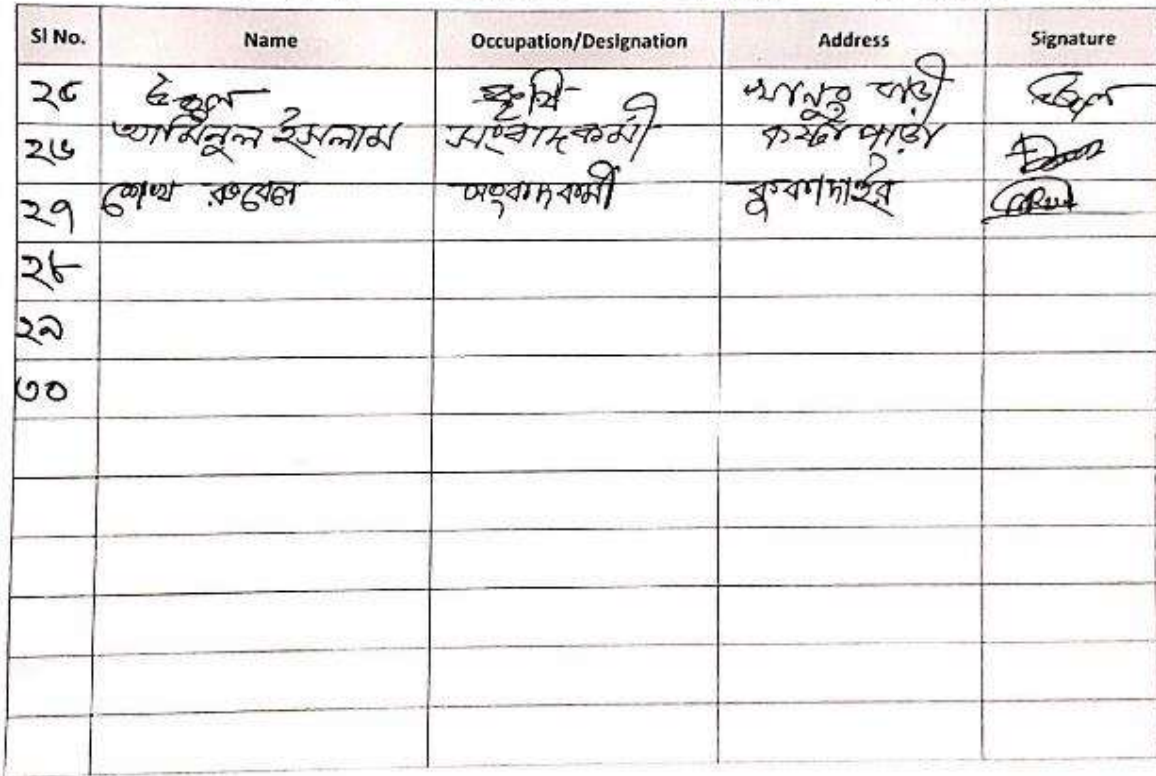 Sl No. Name Occupation/Designation Address Signature
২৫ উজ্জল কৃষি খানুর বাড়ী
২৬ আমিনুল ইসলাম সংবাদকর্মী কষ্টাপাড়া
২৭ শেখ রুবেল সংবাদকর্মী কুকাদাইর
২৮
২৯
৩০